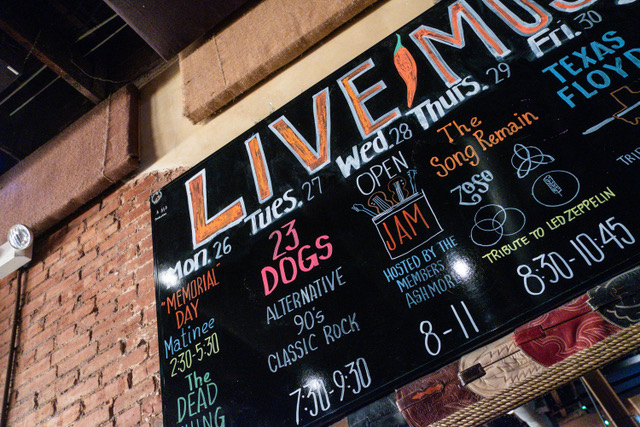 LIVE MUS
Mon. 26
"MEMORIAL"
DAY
Matinee
2:30-5:30
The
DEAD
Tues. 27
23
DOGS
ALTERNATIVE
90's
CLASSIC ROCK
7:30-9:30
Wed. 28
OPEN
JAM
HOSTED BY THE
MEMBERS
ASHMOR
8-11
Thurs. 29
The
Song Remain
ZOSO
TRIBUTE TO LED ZEPPELIN
8:30-10:45
Fri. 30
TEXAS
FLOYD
TRIBU